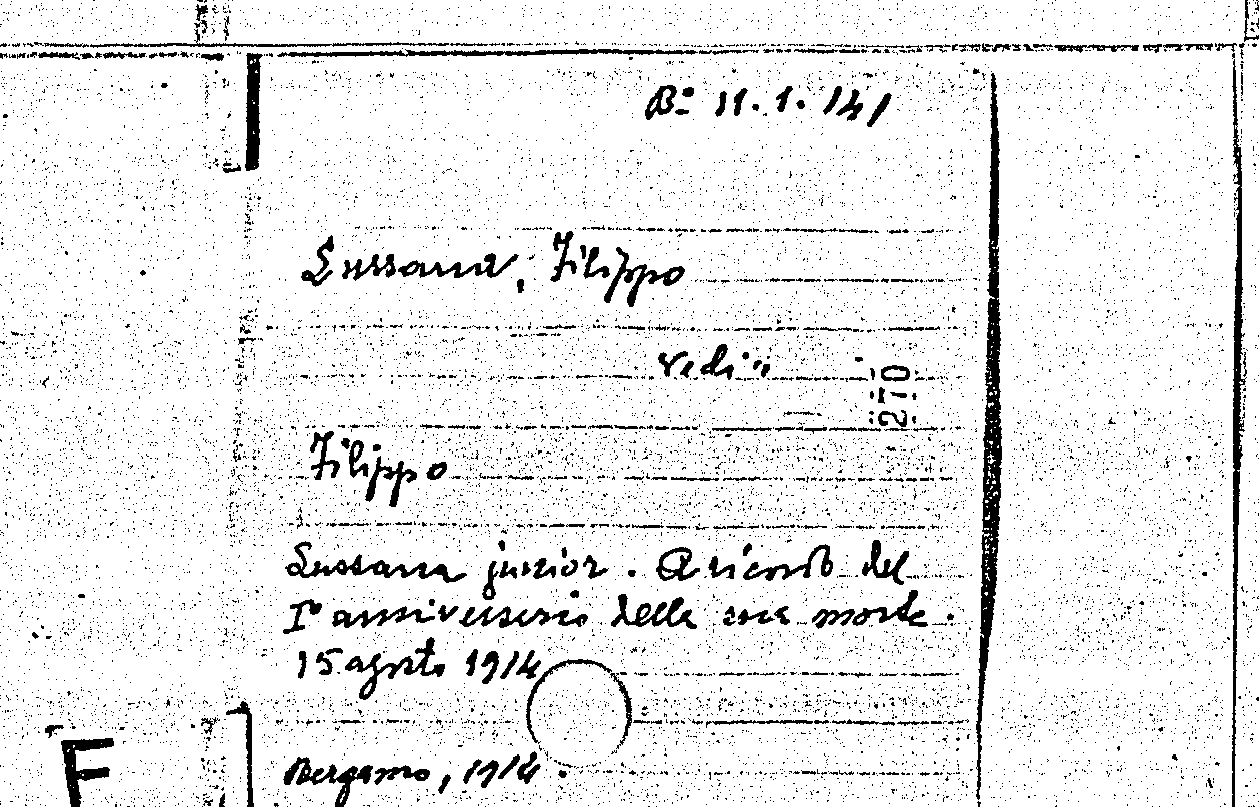 Bº 11.1.141
Lussana, Filippo
vedi:
270
Filippo
Lussana junior. A ricordo del
Iº anniversario della sua morte.
15 agosto 1914
Bergamo, 1914.
F